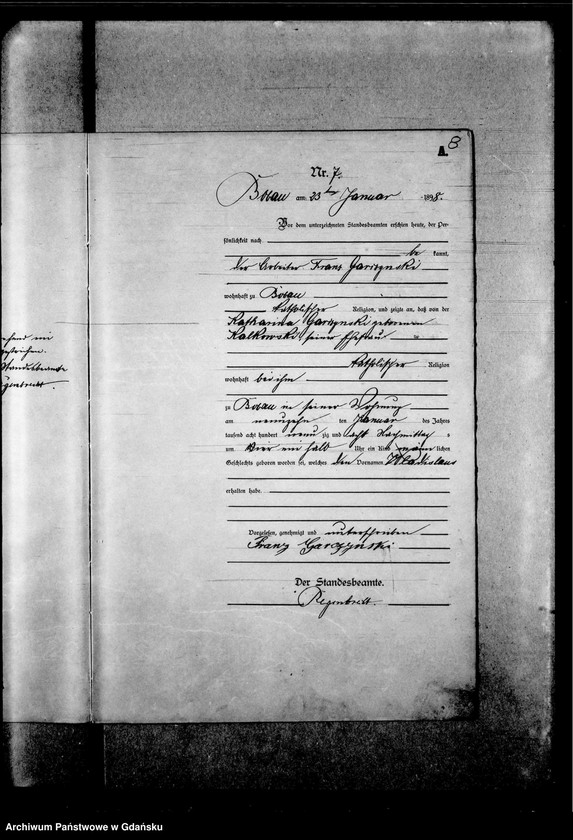 8
A.
Nr. 7.
Bobau am 23ten Januar 1898.
Vor dem unterzeichneten Standesbeamten erschien heute, der Per-
sönlichkeit nach
be kannt,
der Arbeiter Franz Garczynski
wohnhaft zu Bobau
katholischer Religion, und zeigte an, daß von der
Katharina Garczynski geborenen
Kalkowski, seiner Ehefrau
katholischer Religion
wohnhaft bei ihm
zu Bobau in seiner Wohnung
am neunzehn ten Januar des Jahres
tausend acht hundert neun zig und acht Nachmittags
um vier ein halb Uhr ein Kind männlichen
Geschlechts geboren worden sei, welches den Vornamen Wladislaus
erhalten habe.
Vorgelesen, genehmigt und unterschrieben
Franz Garczynski
Der Standesbeamte.
Regenbrecht.
ehend ein
gestrichen.
Standesbeamte
egenbrecht.
Archiwum Państwowe w Gdańsku